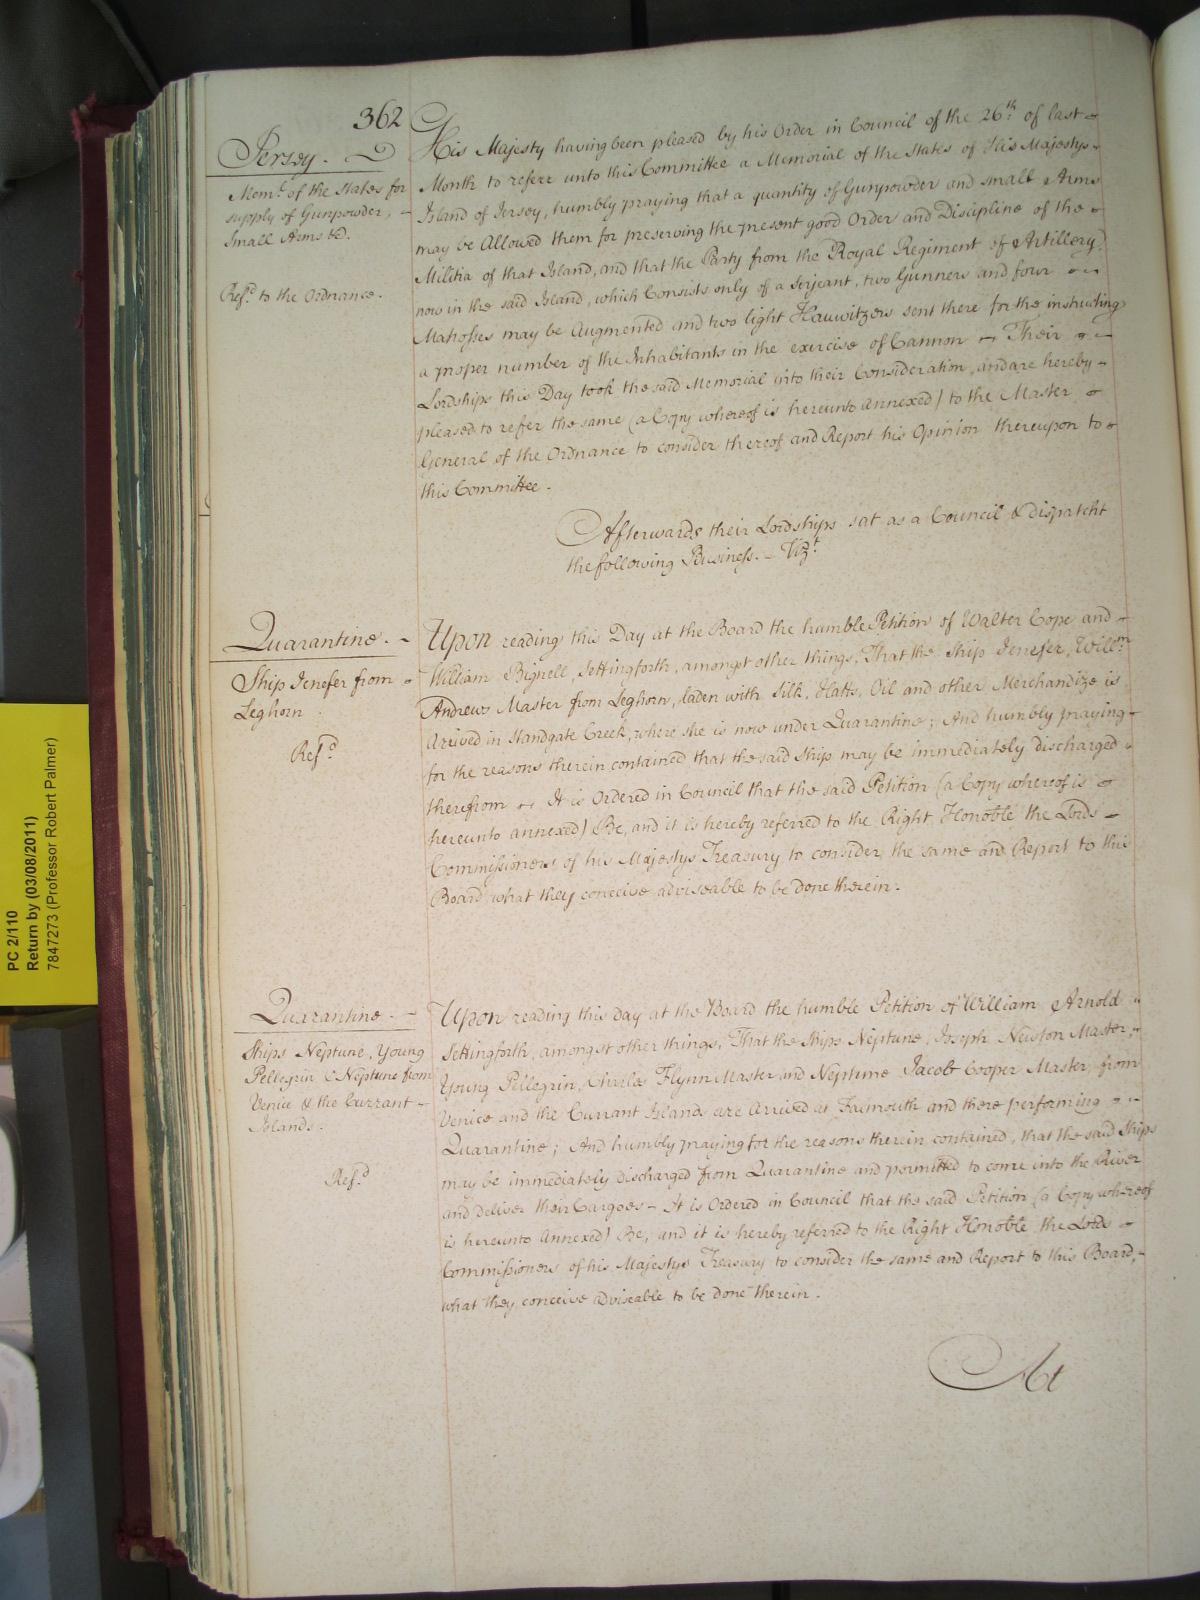 362
Jersey.
Mem.l of the States for
supply of Gunpowder,
Small Arms &c.
Ref.d to the Ordnance.
His Majesty having been pleased by his Order in Council of the 26.th of last
Month to referr unto this Committee a Memorial of the States of His Majestys
Island of Jersey, humbly praying that a quantity of Gunpowder and small Arms
may be Allowed them for preserving the present good Order and Discipline of the
Militia of that Island, and that the Party from the Royal Regiment of Artillery
now in the said Island, which Consists only of a Serjeant, two Gunners and four
Matrosses may be Augmented and two light Hauwitzers sent there for the instructing
a proper number of the Inhabitants in the exercise of Cannon - Their
Lordships this Day took the said Memorial into their Consideration, and are hereby
pleased to refer the same (a Copy whereof is hereunto Annexed) to the Master
General of the Ordnance to consider thereof and Report his Opinion thereupon to
this Committee.
Afterwards their Lordships sat as a Council & dispatcht
the following Business. - Viz.t
Quarantine.
Ship Jenefer from
Leghorn
Ref.d
Upon reading this Day at the Board the humble Petition of Walter Cope and
William Bignell, Settingforth, amongst other things, That the Ship Jenefer, Will.m
Andrews Master from Leghorn, laden with Silk, Hatts, Oil and other Merchandize is
Arrived in Standgate Creek, where she is now under Quarantine; And humbly praying
for the reasons therein contained that the said Ship may be immediately discharged
therefrom - It is Ordered in Council that the said Petition (a Copy whereof is
hereunto annexed) Be, and it is hereby referred to the Right Honoble the Lords
Commissioners of his Majestys Treasury to consider the same and Report to this
Board what they conceive adviseable to be done therein.
Quarantine.
Ships Neptune, Young
Pellegrin & Neptune from
Venice & the Currant
Islands.
Ref.d
Upon reading this day at the Board the humble Petition of William Arnold
Settingforth, amongst other things, That the Ships Neptune, Joseph Newson Master,
Young Pellegrin, Charles Flynn Master and Neptune Jacob Cooper Master, from
Venice and the Currant Islands are Arrived at Falmouth and there performing
Quarantine; And humbly praying for the reasons therein contained, that the said Ships
may be immediately discharged from Quarantine and permitted to come into the River
and deliver their Cargoes - It is Ordered in Council that the said Petition (a Copy whereof
is hereunto Annexed) Be, and it is hereby referred to the Right Honoble the Lords
Commissioners of his Majestys Treasury to consider the same and Report to this Board,
what they conceive adviseable to be done therein.
At
PC 2/110
Return by (03/08/2011)
7847273 (Professor Robert Palmer)